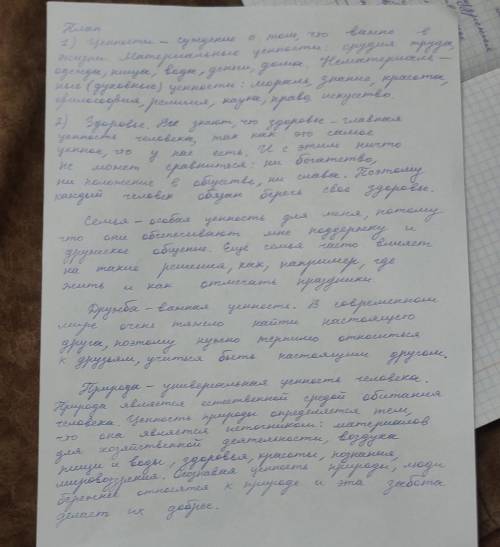 План
1) Ценности – суждение о том, что важно в
жизни. Материальные ценности: орудия труда,
одежда, пища, вода, деньги, дома. Нематериаль-
ные (духовные) ценности: мораль, знание, красота,
философия, религия, наука, право, искусство.
2) Здоровье. Все знают, что здоровье – главная
ценность человека, так как это самое
ценное, что у нас есть. И с этим ничто
не может сравниться: ни богатство,
ни положение в обществе, ни слава. Поэтому
каждый человек обязан беречь свое здоровье.
Семья – особая ценность для меня, потому
что они обеспечивают мне поддержку и
дружеское общение. Ещё семья часто влияет
на такие решения, как, например, где
жить и как отмечать праздники.
Дружба – важная ценность. В современном
мире очень тяжело найти настоящего
друга, поэтому нужно терпимо относиться
к друзьям, учиться быть настоящим другом.
Природа – универсальная ценность человека.
Природа является естественной средой обитания
человека. Ценность природы определяется тем,
что она является источником: материалов
для хозяйственной деятельности, воздуха
пищи и воды, здоровья, красоты, познания,
мировоззрения. Осознавая ценность природы, люди
бережнее относятся к природе и эта забота
делает их добрее.